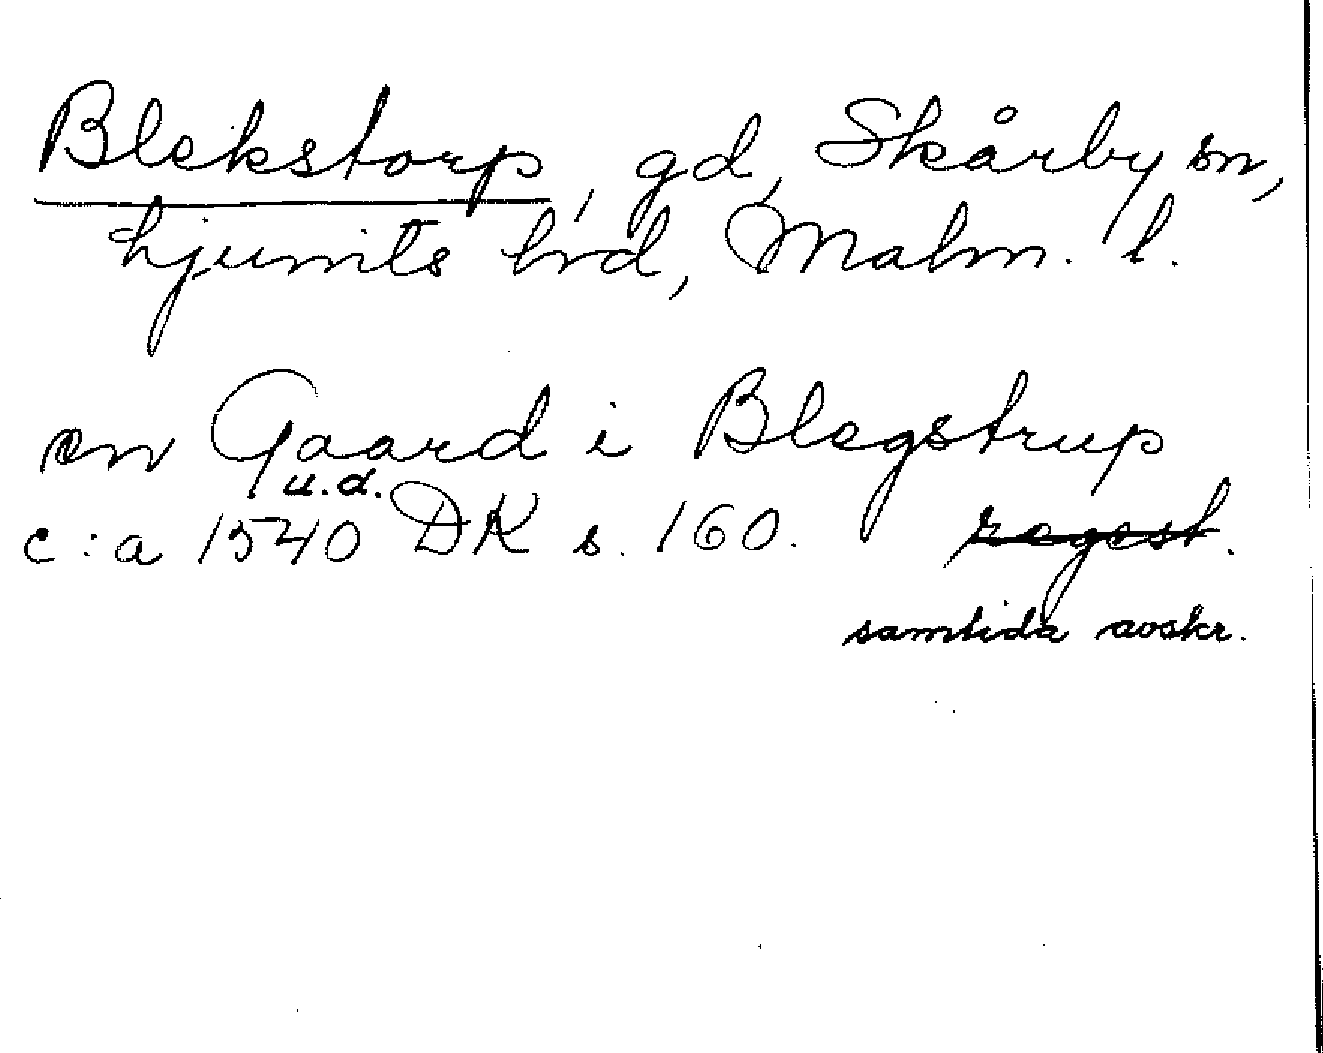 Blekstorp, gd, Skårby sn,
Ljunits hrd, Malm. l.
en Gaard i Blegstrup
u.d.
c:a 1540 DK s. 160. regest.
samtida avskr.